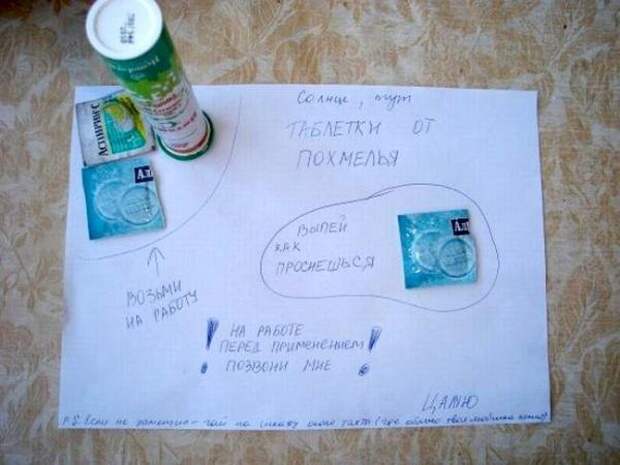 Солнце, тут
ТАБЛЕТКИ ОТ
ПОХМЕЛЬЯ
АСПИРИН С
Ал
ВЫПЕЙ
КАК
ПРОСНЕШЬСЯ
Ал
ВОЗЬМИ
НА РАБОТУ
! НА РАБОТЕ !
ПЕРЕД ПРИМЕНЕНИЕМ
ПОЗВОНИ МНЕ
ЦАЛУЮ
P.S. Если не заметил - чай на